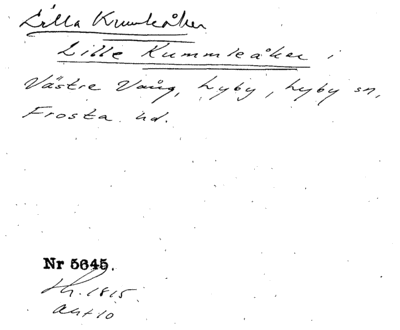 Lilla Kumleåker
Lille Kummleåker i
Västre Vång, Lyby, Lyby sn,
Frosta hd.
Nr 5645.
1815.
akt 10